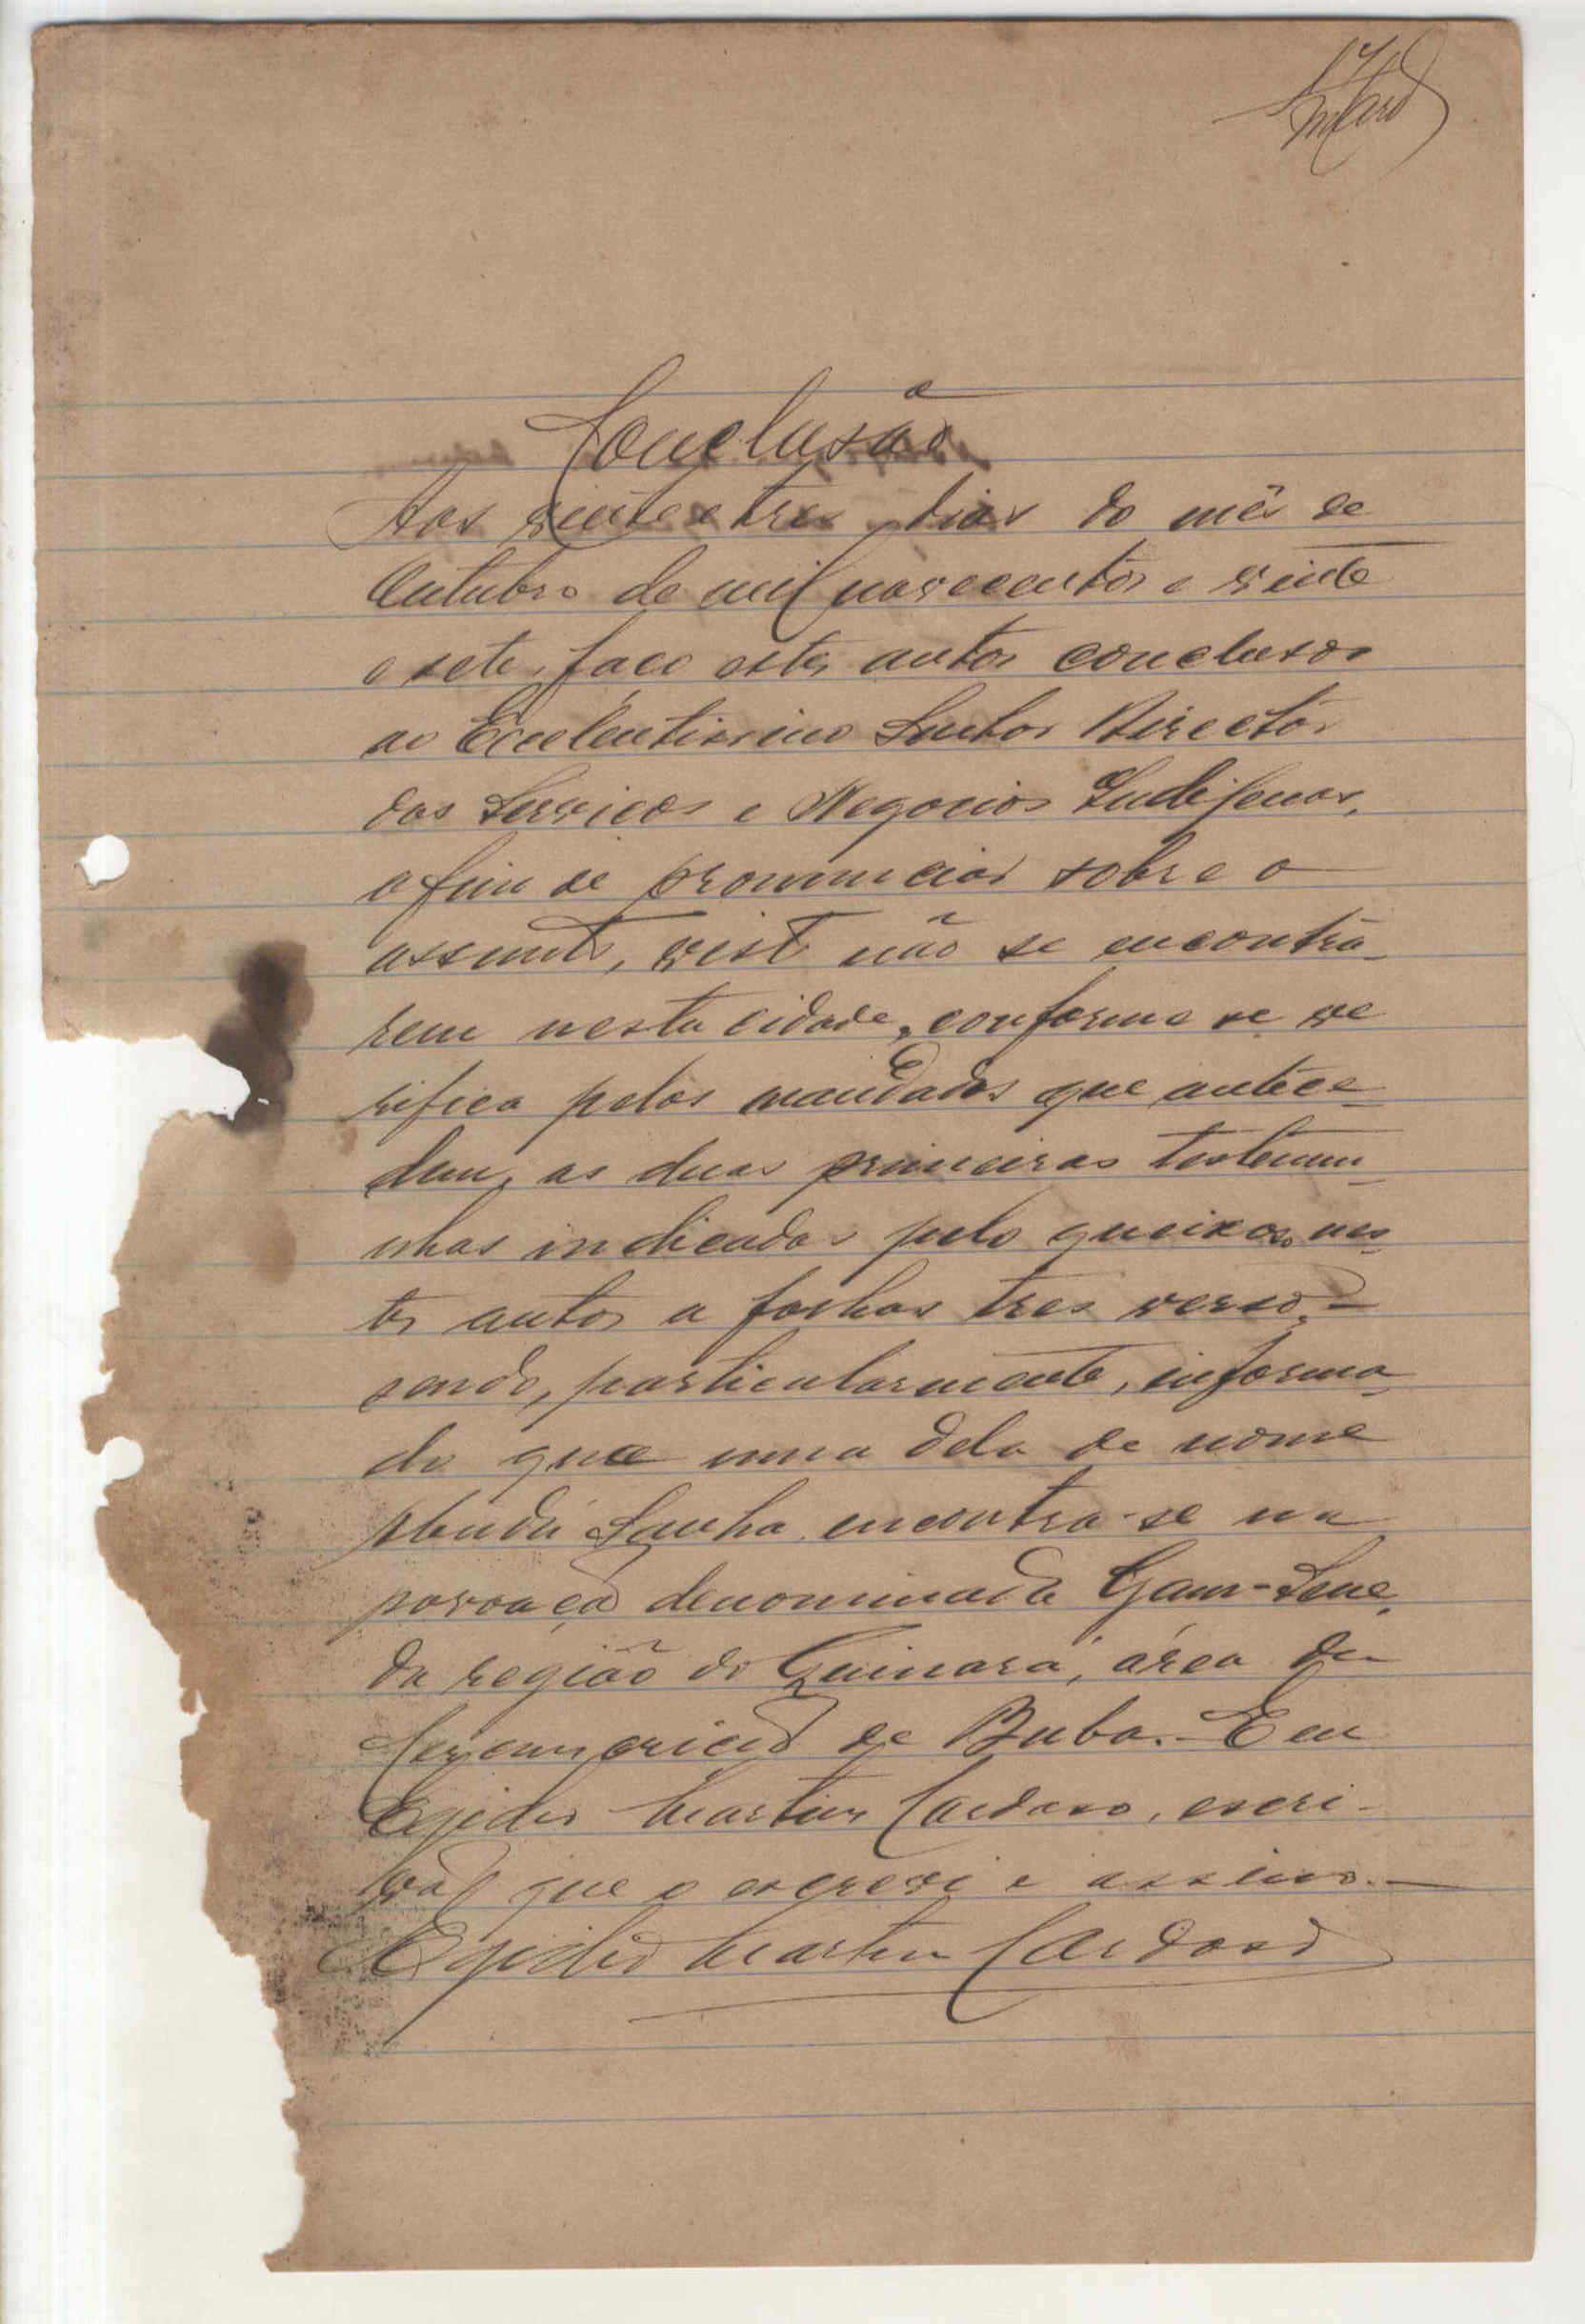 Conclusão
Aos vinte e tres dias do mês de
Outubro de mil novecentos e vinte
e sete, faço estes autos conclusos
ao Excelentissimo Senhor Director
dos Serviços e Negocios Indigenas,
a fim de pronunciar sobre o
assunto, visto não se encontra-
rem nesta cidade, conforme se ve
rifica pelos mandados que antece-
dem, as duas primeiras testemu-
nhas indicadas pelo queixoso nes-
tes autos a folhas tres verso,-
sendo, particularmente, informa-
do que uma dela de nome
Sanha, encontra-se na
povoação denominada Gam-Sene,
da região do Quinara, área da
de Buba.- E eu
Egidio Martins Cardoso, escri-
vão que o escrevi e assino.-
Egidio Martins Cardoso